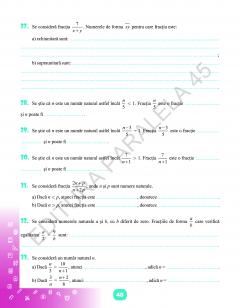 27. Se consideră fracția 7/(x+y). Numerele de forma xy pentru care fracția este:
a) echiunitară sunt:
b) supraunitară sunt:
28. Se știe că n este un număr natural astfel încât Fracția este o fracție
și n poate fi
29. Se știe că n este un număr natural astfel încât Fracția este o fracție
și n poate fi
30. Se știe că n este un număr natural astfel încât Fracția este o fracție
și n poate fi
31. Se consideră fracția unde n și p sunt numere naturale.
a) Dacă n < p, atunci fracția este , deoarece
b) Dacă n > p, atunci fracția este , deoarece
32. Se consideră numerele naturale a și b, cu b diferit de zero. Fracțiile de forma a/b care verifică
egalitatea sunt:
33. Se consideră un număr natural n.
a) Dacă , atunci , adică n =
b) Dacă , atunci , adică n =
EDITURA PARALELA 45